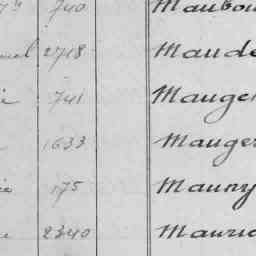 740 Maubou
2718 Maude
741 Mauger
1633 Mauger
175 Mauny
2340 Mauric